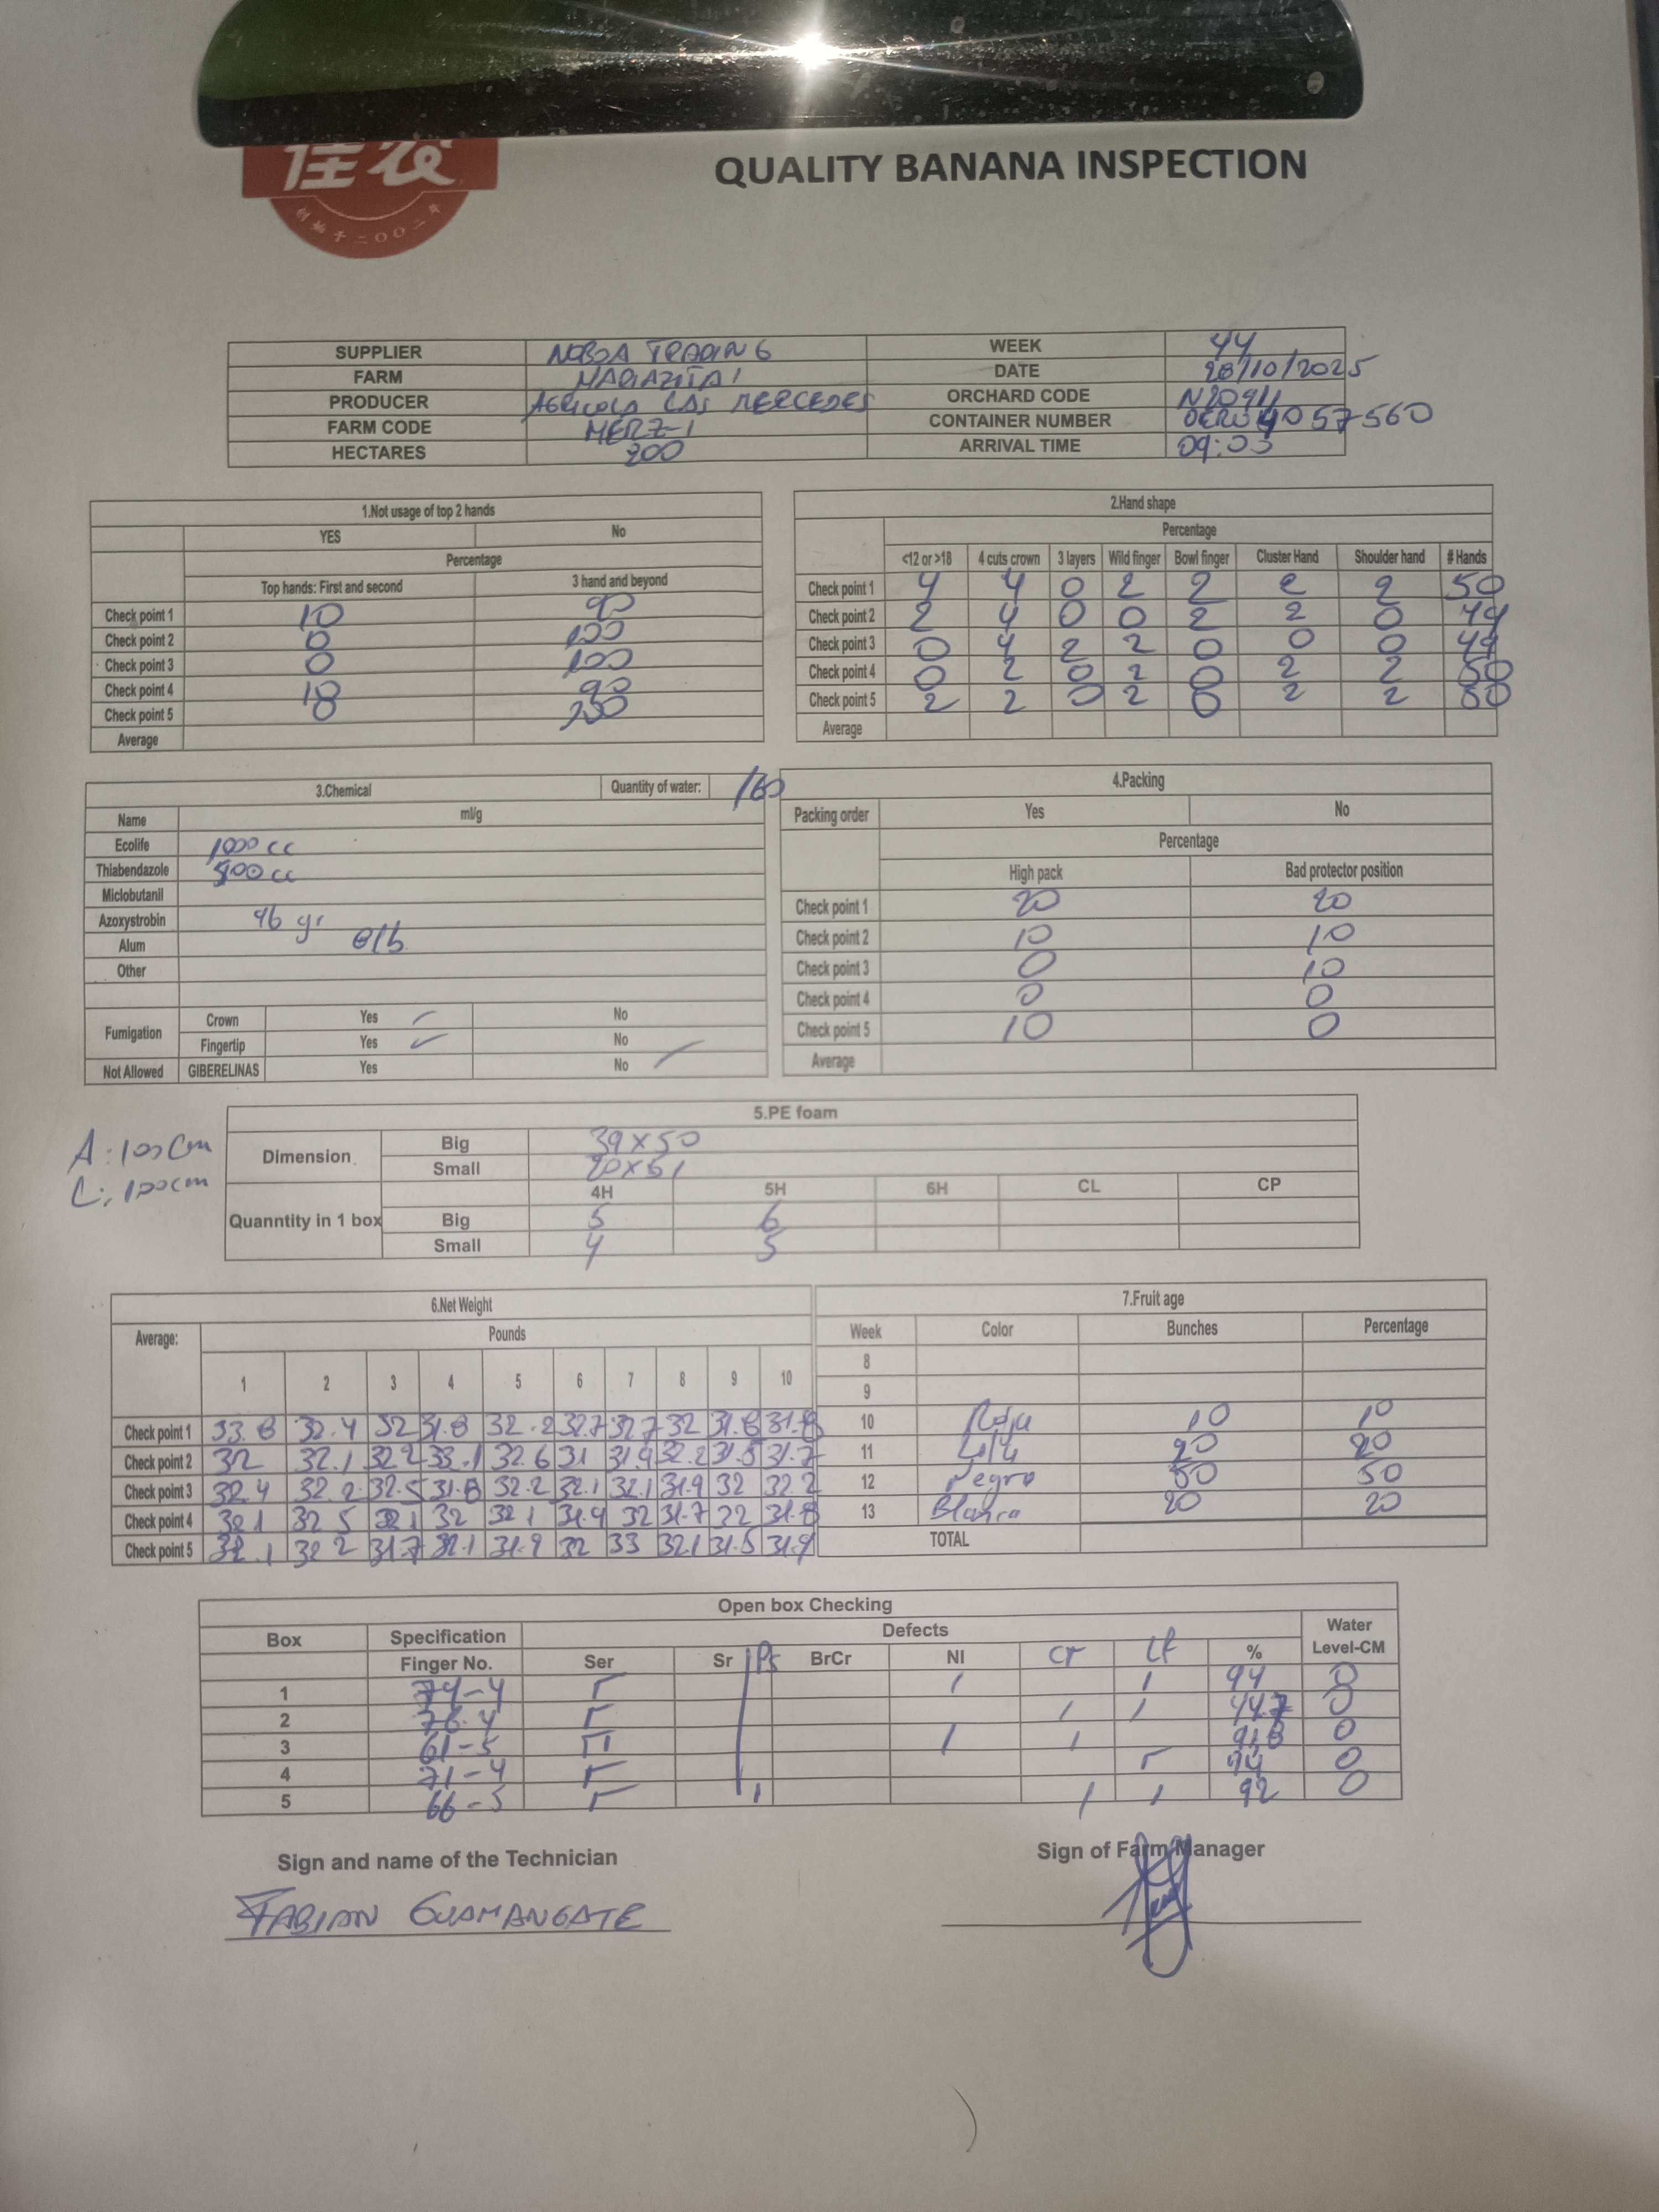 佳农
创始于二〇〇二年
QUALITY BANANA INSPECTION
SUPPLIER NOBOA TRADING WEEK 44
FARM MARIAZITA 1 DATE 28/10/2025
PRODUCER AGRICOLA LAS MERCEDES ORCHARD CODE
FARM CODE MERZ-1 CONTAINER NUMBER
HECTARES 200 ARRIVAL TIME 09:03
1.Not usage of top 2 hands
YES No
Percentage
Top hands: First and second 3 hand and beyond
Check point 1 10 90
Check point 2 0 100
Check point 3 0 100
Check point 4 10 90
Check point 5 0
Average
2.Hand shape
Percentage
<12 or >18 4 cuts crown 3 layers Wild finger Bowl finger Cluster Hand Shoulder hand # Hands
Check point 1 4 4 0 2 2 2 2 50
Check point 2 2 4 0 0 2 2 0 49
Check point 3 0 4 2 2 0 0 0 49
Check point 4 0 2 0 2 0 2 2 50
Check point 5 2 2 0 2 0 2 2 50
Average
3.Chemical Quantity of water: 160
Name ml/g
Ecolife 1000 cc
Thiabendazole cc
Miclobutanil
Azoxystrobin 96 gr
Alum
Other
Fumigation Crown Yes No
Fingertip Yes No
Not Allowed GIBERELINAS Yes No
4.Packing
Packing order Yes No
Percentage
High pack Bad protector position
Check point 1 20 20
Check point 2 10 10
Check point 3 0 10
Check point 4 0 0
Check point 5 10 0
Average
A: 100 cm
L: 100 cm
5.PE foam
Dimension Big 39x50
Small 20x51
4H 5H 6H CL CP
Quanntity in 1 box Big 5 6
Small 4 5
6.Net Weight
Average: Pounds
1 2 3 4 5 6 7 8 9 10
Check point 1 33.8 32.4 32 31.8 32.2 32.7 32.7 32 31.8 31.8
Check point 2 32 32.1 32.2 33.1 32.6 31 31.9 32.2 31.5 31.7
Check point 3 32.4 32.2 32.5 31.8 32.2 32.1 32.1 31.9 32 32.2
Check point 4 32.1 32.5 32.1 32 32.1 31.9 32 31.7 32 31.8
Check point 5 32.1 32.2 31.7 32.1 31.9 32 33 32.1 31.5 31.9
7.Fruit age
Week Color Bunches Percentage
8
9
10 Roja 10 10
11 Lila 20 20
12 Negro 50 50
13 Blanca 20 20
TOTAL
Open box Checking
Box Specification Defects Water
Finger No. Ser Sr Ps BrCr NI Cr Lf % Level-CM
1 74-4 94 0
2 76-4 0
3 61-5 0
4 71-4 94 0
5 66-5 92 0
Sign and name of the Technician Sign of Farm Manager
FABIAN GUAMANGATE